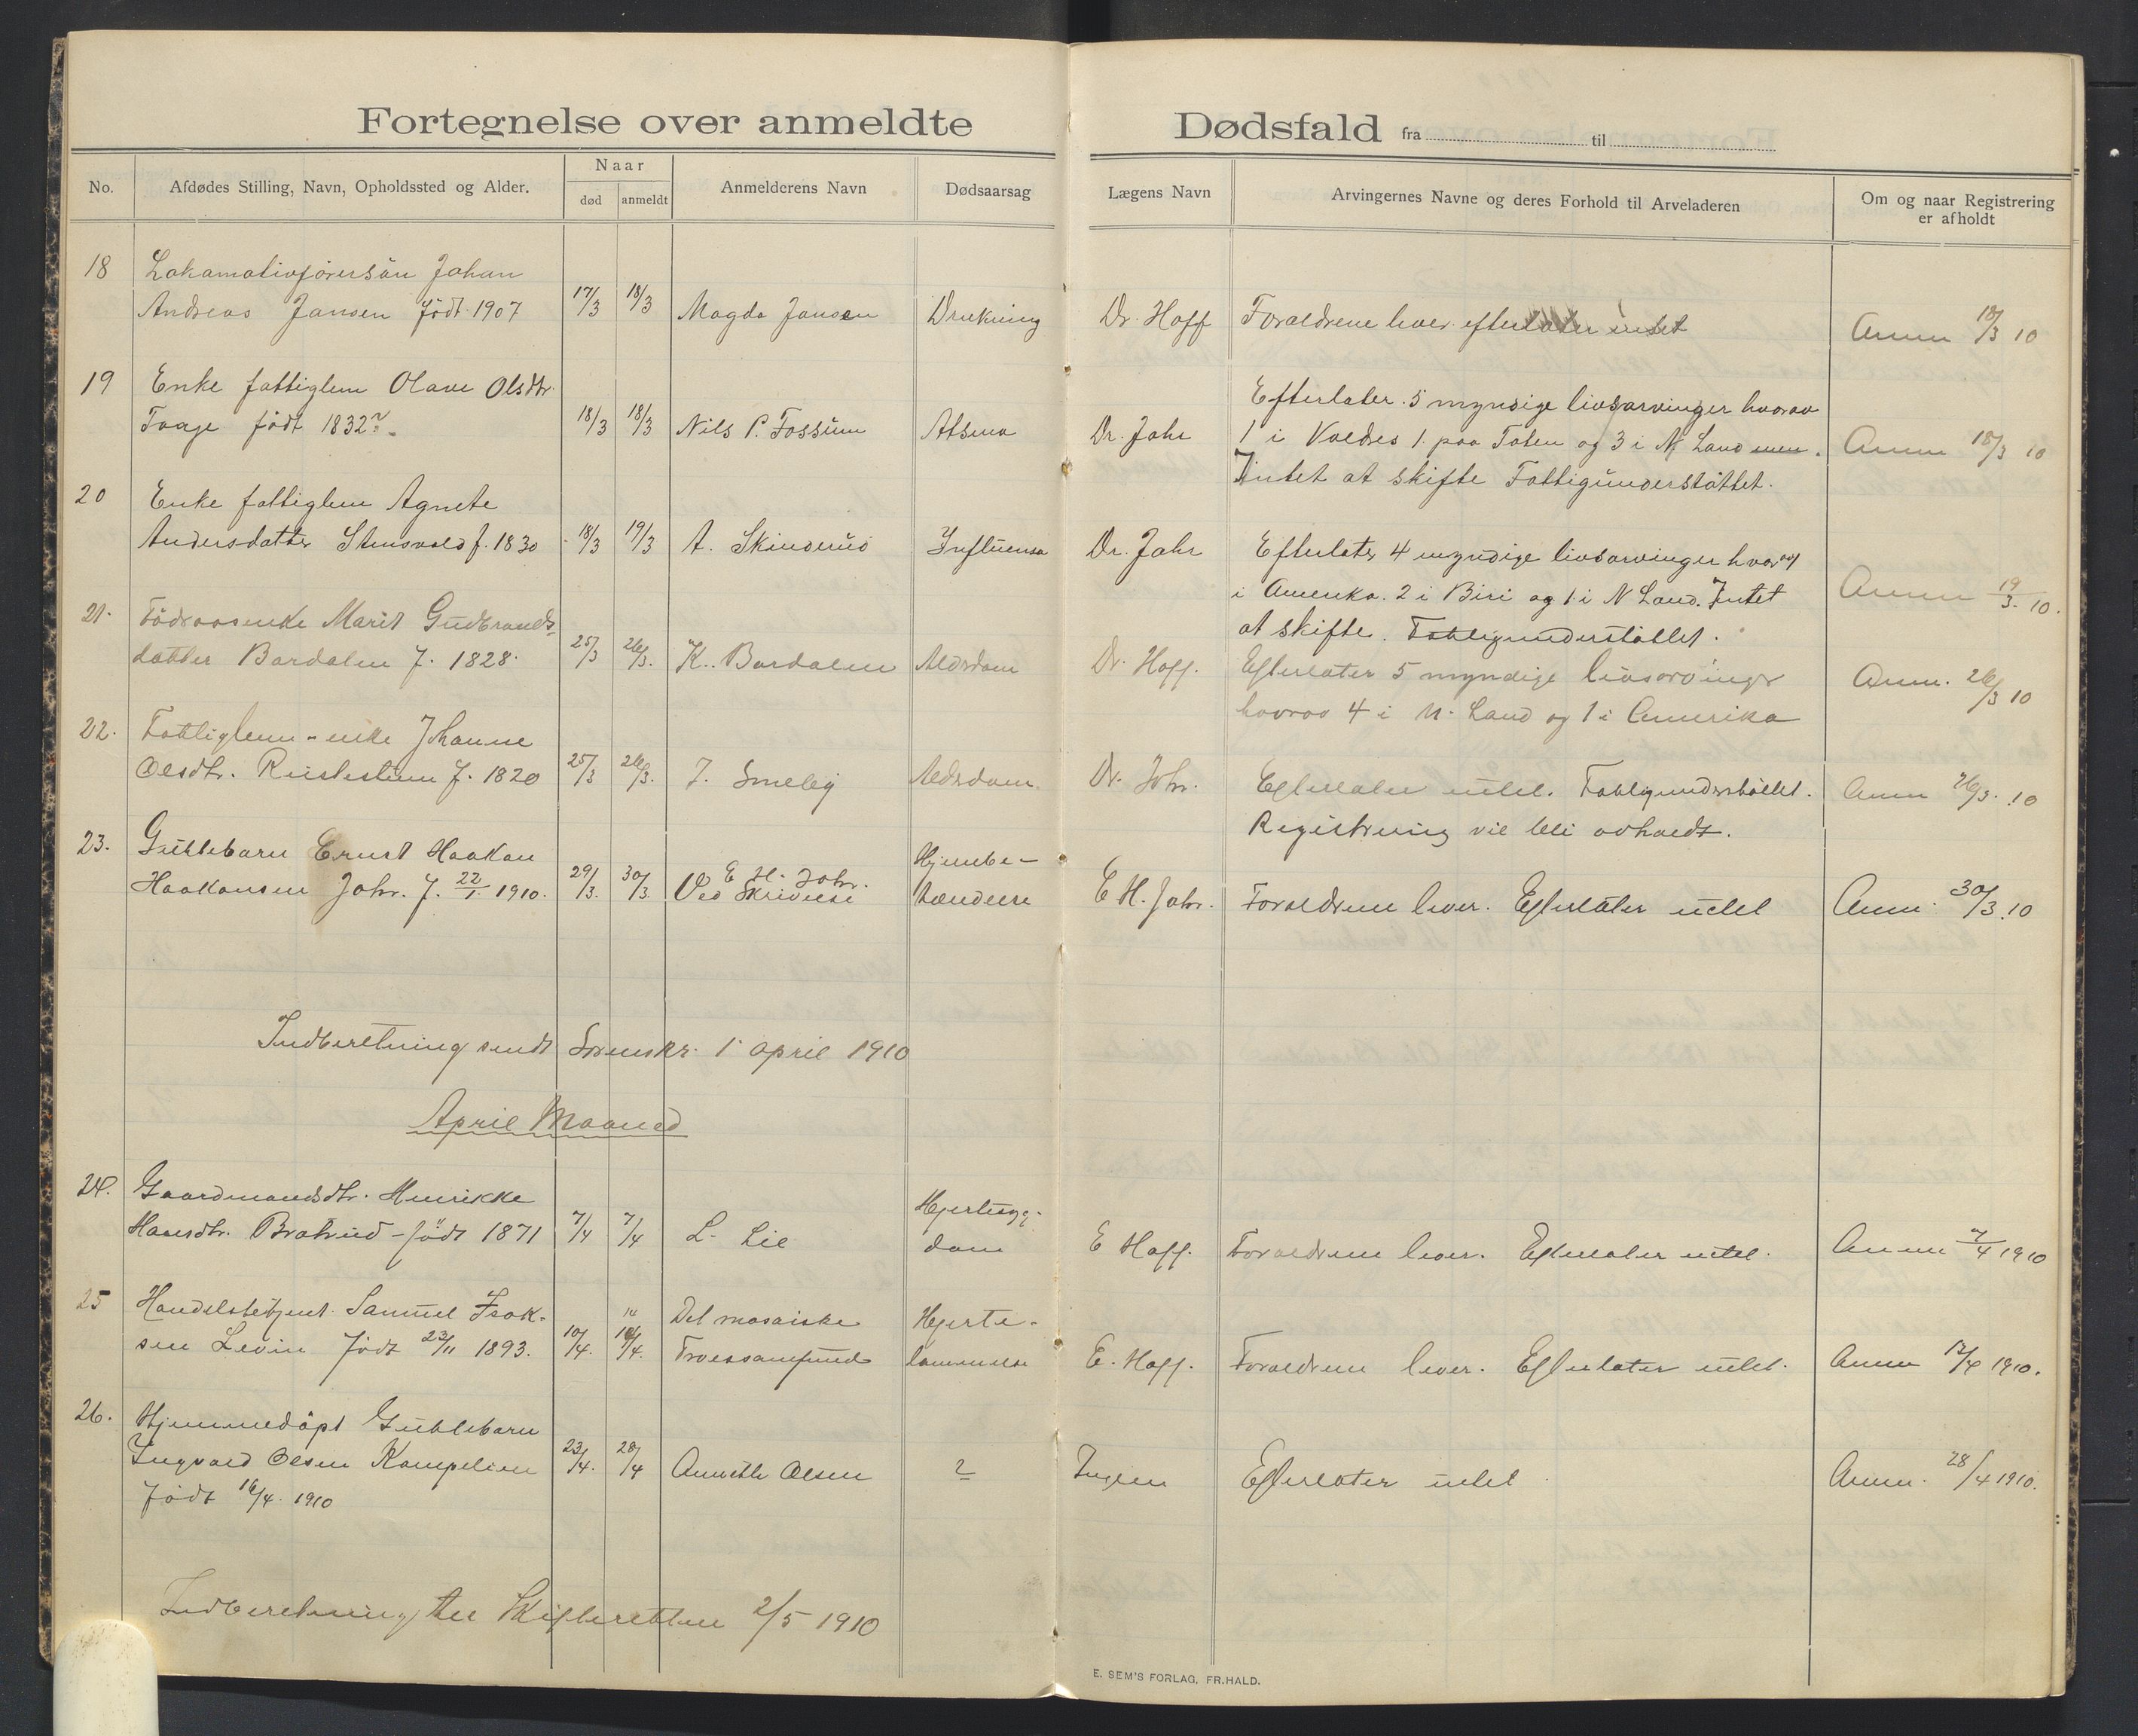 Fortegnelse over anmeldte Dødsfald fra til
No. Afdødes Stilling, Navn, Opholdssted og Alder. Naar død anmeldt Anmelderens Navn Dødsaarsag Lægens Navn Arvingernes Navne og deres Forhold til Arveladeren Om og naar Registrering er afholdt
18 Lokomotivførersøn Johan
Andreas Jansen født 1907 17/3 18/3 Magda Jansen Drukning Dr. Hoff Foraldrene lever efterlater intet Anm 18/3 10
19 Enke fattiglem Olave Olsdtr.
Faage født 1832? 18/3 18/3 Nils P. Fossum Astma Dr. Jahr
Efterlater 5 myndige livsarvinger hvorav
1 i Valdres 1 paa Toten og 3 i N Land men. Anm 18/3 10
Intet at skifte Fattigunderstøttet.
20 Enke fattiglem Agnete
Andersdatter Stensvold f. 1830 18/3 19/3 A. Skinderud Influensa Dr. Jahr Efterlater 4 myndige livsarvinger hvorav 1
i Amerika. 2 i Biri og 1 i N Land. Intet Anm 19/3. 10.
at skifte. Fattigunderstøttet.
21. Føderaadsenke Marit Gudbrands-
datter Bardalen f. 1828. 25/3 26/3. K. Bardalen Aldrdom Dr. Hoff. Efterlater 5 myndige livsarvinger
hvorav 4 i N. Land og 1 i Amerika Anm. 26/3 10
22. Fattiglem-enke Johanne
Olsdtr. Rustestuen f. 1820 25/3 26/3. J. Smeby Aldrdom. Dr. Jahr. Efterlater intet. Fattigunderstøttet. Anm 26/3. 10
Registrering vil bli avholdt.
23. Guttebarn Ernst Haakon
Haakonsen Jahr. f. 22/1 1910. 29/3. 30/3. E H. Jahr. Ved Skrivelse Hjernebe-
tændelse E H. Jahr. Foraldrene lever. Efterlater intet Anm. 30/3. 10
Indberetning sendt Sorenskr. 1 april 1910
April Maaned
24. Gaardmandsdtr. Henrikke
Hansdtr. Bratrud - født 1871 7/4 7/4 L. Lie Hjertesyg-
dom E Hoff. Foraldrene lever. Efterlater intet. Anm 7/4 1910
25 Handelsbetjent Samuel Isak-
sen Levin født 23/11 1893. 10/4. 14/4. Det mosaiske
Troessamfund Hjerte-
lammelse E. Hoff. Foraldrene lever. Efterlater intet. Anm 12/4 1910.
26. Hjemmedøpt Guttebarn
Ingvald Olsen Kampelien 23/4. 28/4 Annethe Olsen ? Ingen Efterlater intet Anm. 28/4 1910.
født 16/4. 1910
Indberetning til Skifteretten 2/5 1910
E. SEM'S FORLAG, FR.HALD.